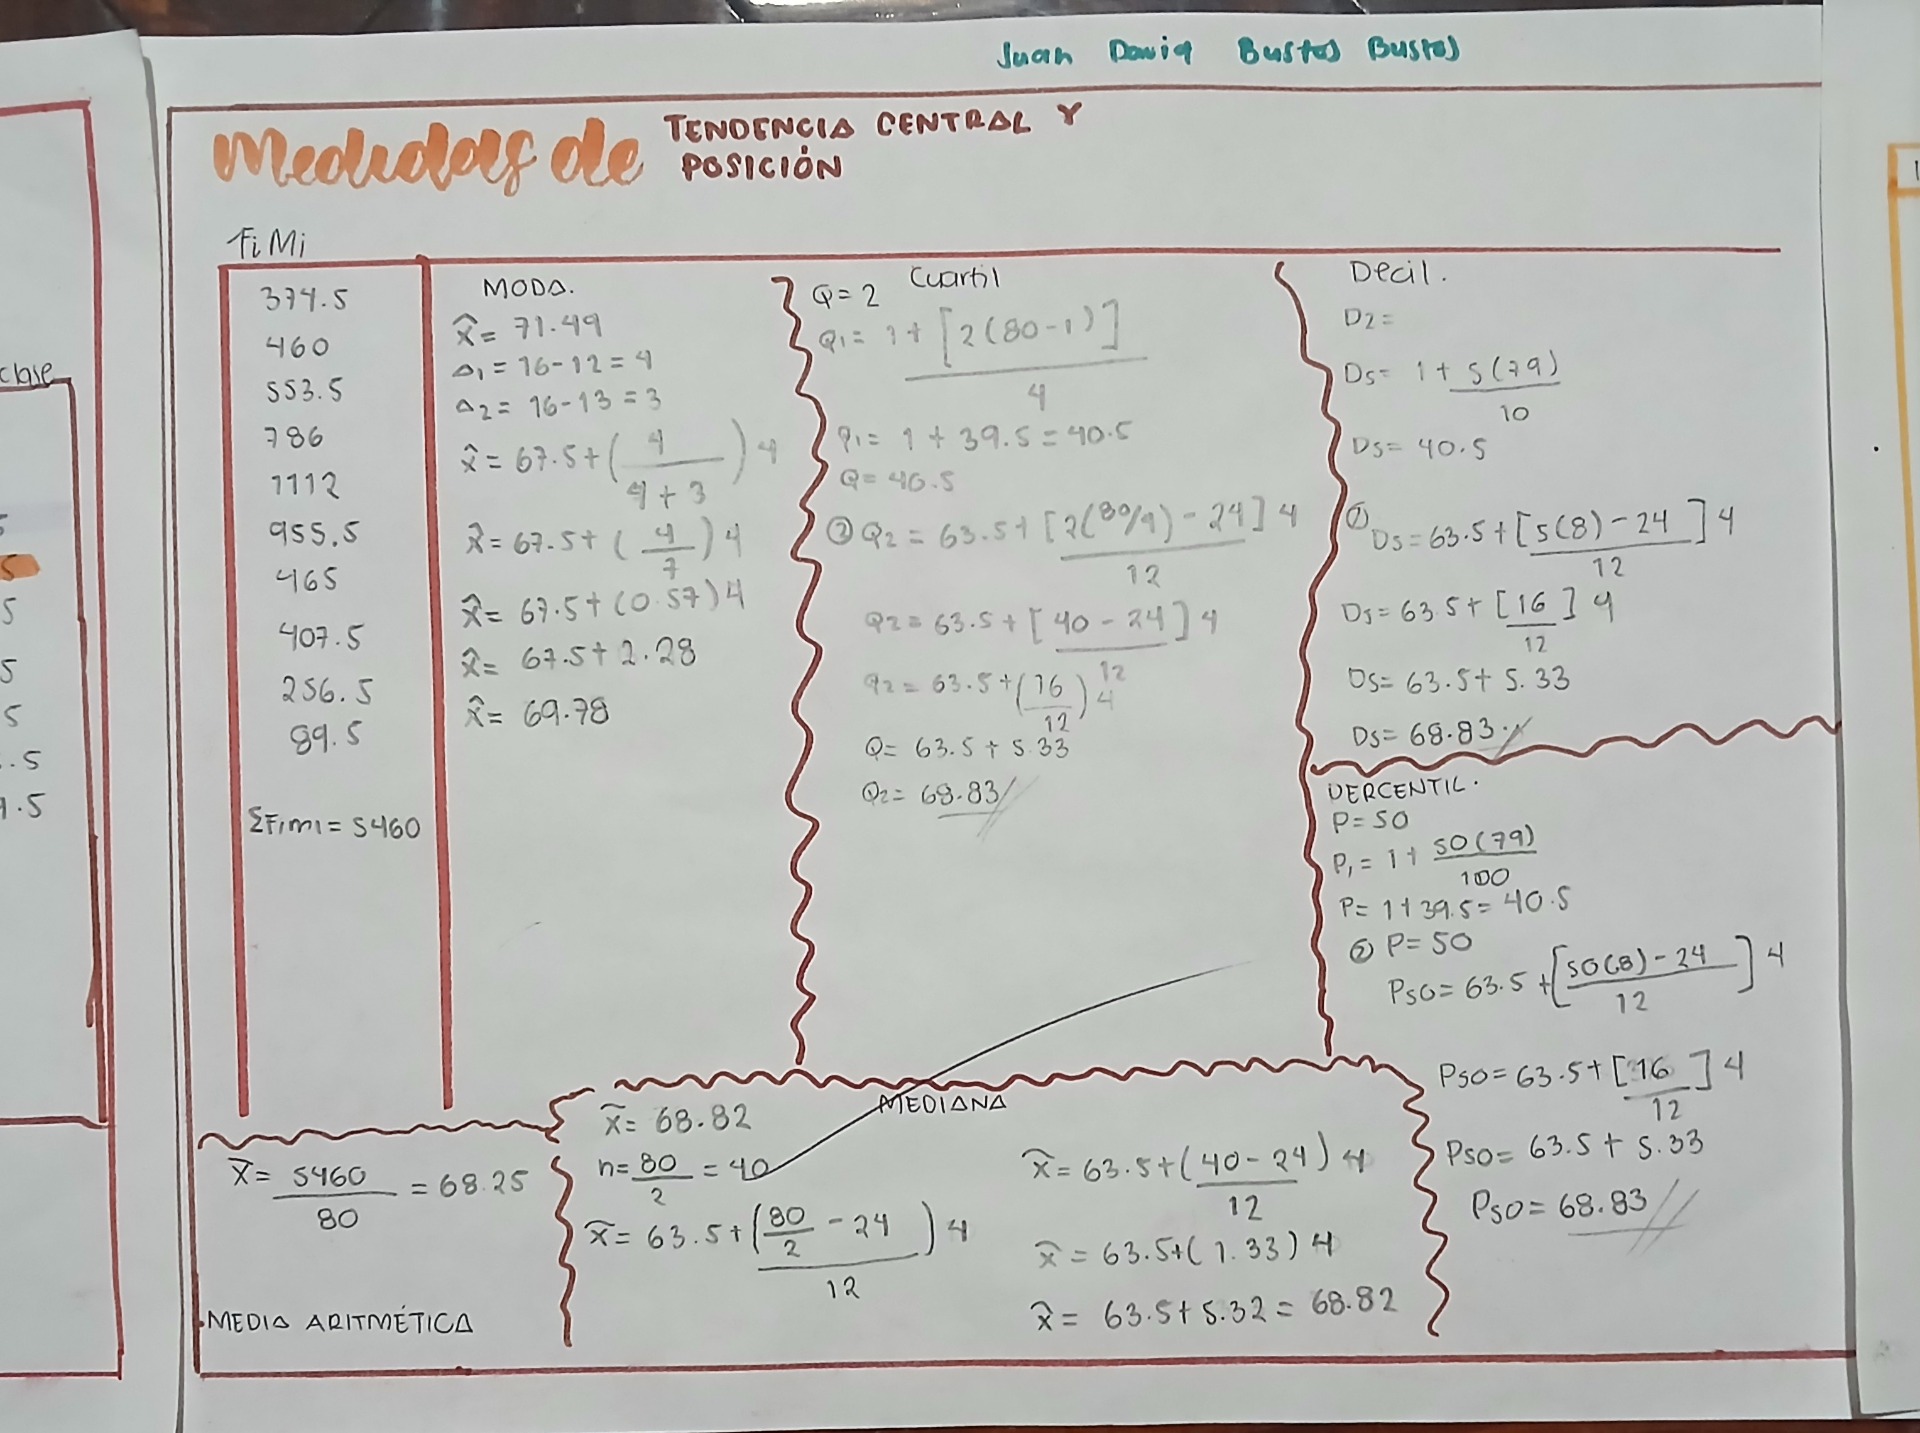 Juan David Bustos Bustos
Medidas de TENDENCIA CENTRAL Y
POSICIÓN
clase
5
5
5
5
.5
.5
FiMi
374.5
460
553.5
786
1112
955.5
465
407.5
256.5
89.5
ΣFimi = 5460
MODA.
x̂ = 71.49
Δ1 = 16-12 = 4
Δ2 = 16-13 = 3
x̂ = 67.5+(4/4+3)4
x̂ = 67.5+(4/7)4
x̂ = 67.5+(0.57)4
x̂ = 67.5+2.28
x̂ = 69.78
Cuartil
Q=2
Q1= 1+[2(80-1)]/4
q1= 1+39.5=40.5
Q=40.5
② Q2 = 63.5+[2(80/4)-24/12]4
Q2= 63.5+[40-24/12]4
q2= 63.5+(16/12)4
Q= 63.5+5.33
Q2= 68.83//
Decil.
D2=
D5= 1+5(79)/10
D5= 40.5
② D5=63.5+[5(8)-24/12]4
D5=63.5+[16/12]4
D5= 63.5+5.33
D5= 68.83.//
PERCENTIL.
P=50
P1= 1+50(79)/100
P= 1+39.5=40.5
② P=50
P50= 63.5+[50(8)-24/12]4
P50=63.5+[16/12]4
P50= 63.5+5.33
P50= 68.83//
x̄= 5460/80 = 68.25
MEDIA ARITMÉTICA
MEDIANA
x̃= 68.82
n=80/2=40
x̃= 63.5+(80/2-24/12)4
x̃= 63.5+(40-24/12)4
x̃= 63.5+(1.33)4
x̃= 63.5+5.32=68.82